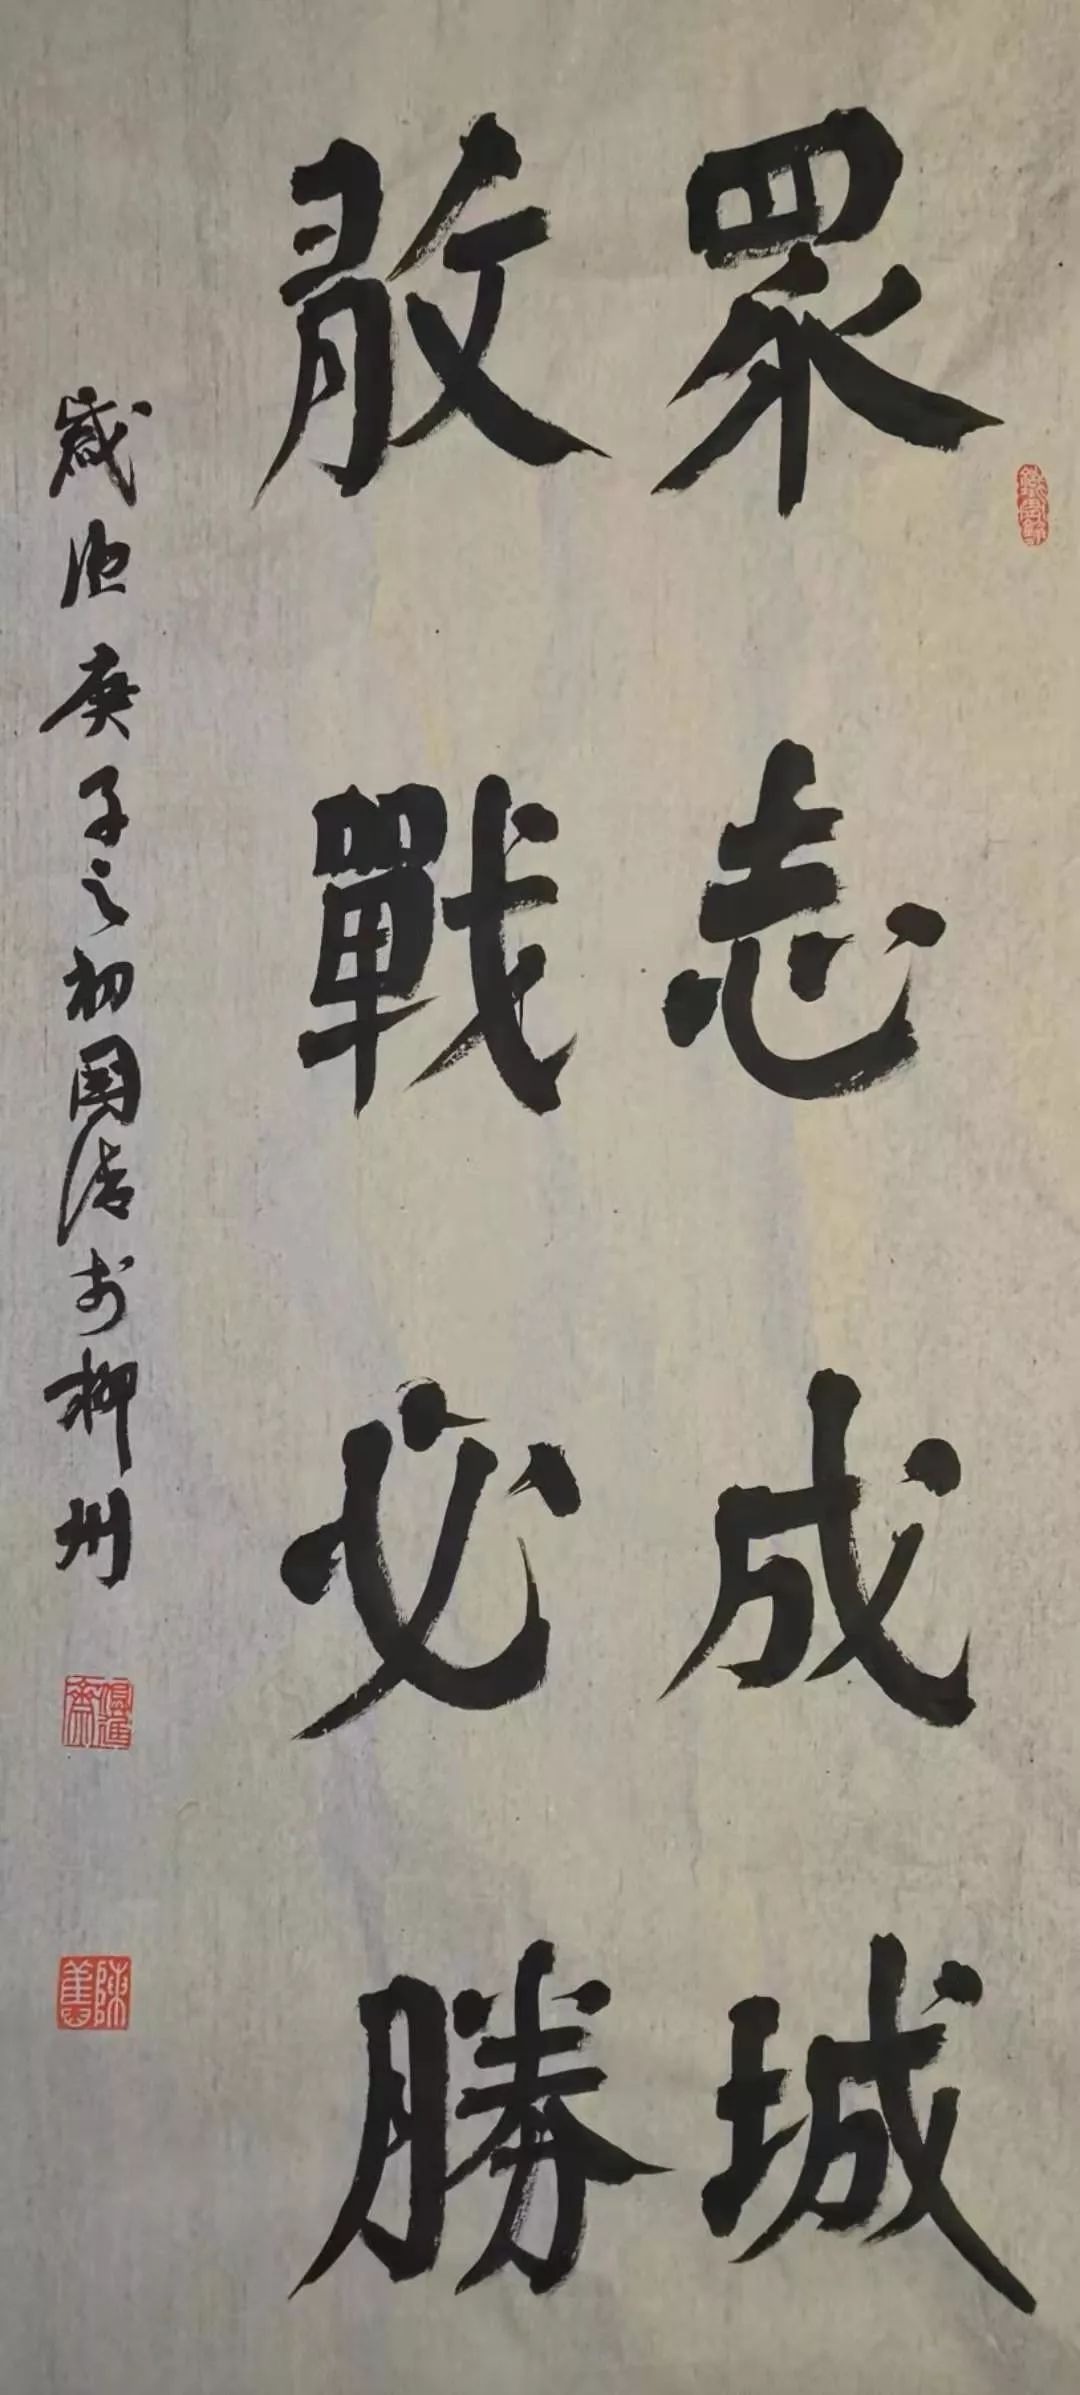 眾志成城
敢戰必勝
歲次庚子之初國清於柳州